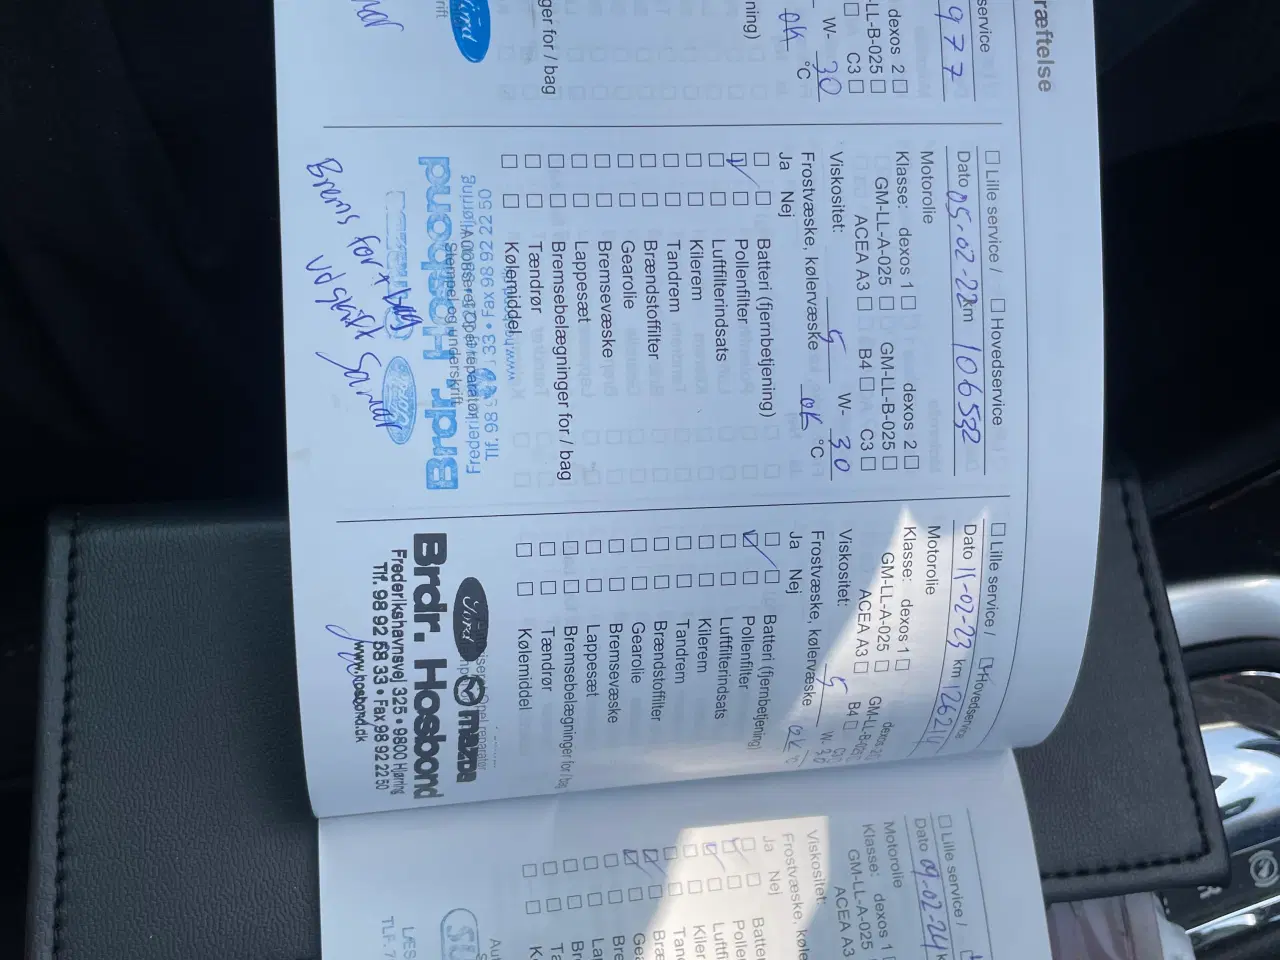 ræftelse
service
977
dexos 2
-LL-B-025
C3
W- 30
°C
OK
ning)
ger for / bag
rift
Ford
Lille service / Hovedservice
Dato 05-02-22 km 106532
Motorolie
Klasse: dexos 1 dexos 2
GM-LL-A-025 GM-LL-B-025
ACEA A3 B4 C3
Viskositet: 5 W- 30
Frostvæske, kølervæske OK °C
Ja Nej
Batteri (fjernbetjening)
Pollenfilter
Luftfilterindsats
Kilerem
Tandrem
Brændstoffilter
Gearolie
Bremsevæske
Lappesæt
Bremsebelægninger for / bag
Tændrør
Kølemiddel
Tlf. 98 92 58 33 • Fax 98 92 22 50
Stempel og underskrift
Brdr. Hosbond
Ford
Brems for + bag
udskift Samar
Lille service / Hovedservice
Dato 11-02-23 km
Motorolie
Klasse: dexos 1 dexos 2
GM-LL-A-025 GM-LL-B-025
ACEA A3 B4
Viskositet: 5 W- 30
Frostvæske, kølervæske OK
Ja Nej
Batteri (fjernbetjening)
Pollenfilter
Luftfilterindsats
Kilerem
Tandrem
Brændstoffilter
Gearolie
Bremsevæske
Lappesæt
Bremsebelægninger for / bag
Tændrør
Kølemiddel
Ford mazda
Brdr. Hosbond
Frederikshavnsvej 325 • 9800 Hjørring
Tlf. 98 92 58 33 • Fax 98 92 22 50
www.hosbond.dk
Lille service /
Dato 09-02-24 k
Motorolie
Klasse: dexos 1
GM-LL-A-025
ACEA A3
Viskositet:
Frostvæske, køle
Ja Nej
Batter
Polle
Luftfi
Kiler
Tan
Bræ
Gea
Bre
La
Br
Ta
K
Aut
LÆS
TLF. 7